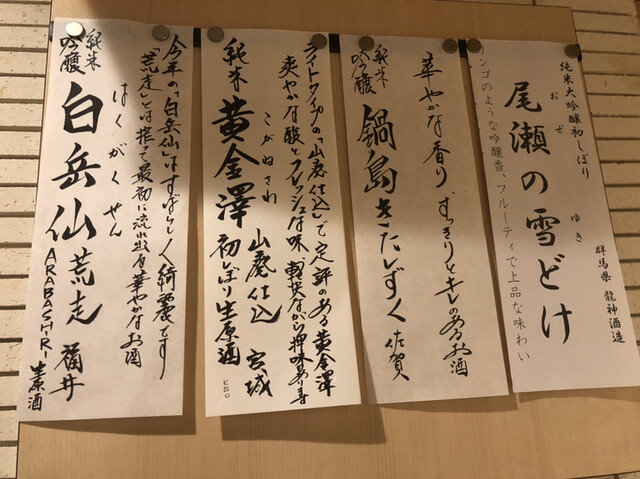 純米大吟醸初しぼり
群馬県 龍神酒造
おぜ ゆき
尾瀬の雪どけ
ンゴのような吟醸香、フルーティで上品な味わい
華やかな香り、すっきりとキレのあるお酒
純米吟醸
鍋島きたしずく 佐賀
ライトタイプの「山廃仕込」で定評のある黄金澤
爽やかな酸とフレッシュな味 軽快ながら押味あります
こがねさわ
純米 黄金澤 山廃仕込 宮城
初しぼり生原酒
ヒロロ
今年の「白岳仙」はすばらしく綺麗です
「荒走」とは搾て最初に流れ出る華やかなお酒
はくがくせん
純米吟醸
白岳仙 荒走 福井
ARABASHIRI 生原酒